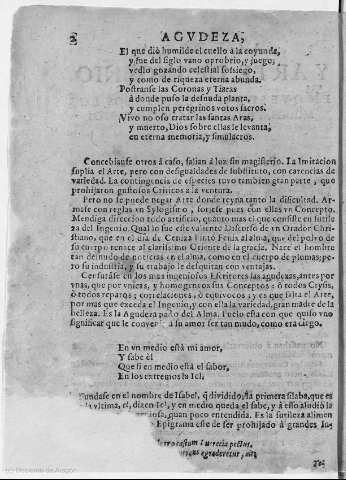 2 AGVDEZA,
El que diò humilde el cuello à la coyunda,
y fue del siglo vano oprobrio, y juego,
vedlo gozando celestial sossiego,
y como de riqueza eterna abunda.
Postranse las Coronas y Tiaras
à donde puso la desnuda planta,
y cumplen peregrinos votos sacros.
Vivo no oso tratar las santas Aras,
y muerto, Dios sobre ellas le levanta,
en eterna memoria, y simulacros.
Concebianse otros à caso, salian à luz sin magisterio. La Imitacion
suplia el Arte, pero con desigualdades de substituto, con carencias de
variedad. La contingencia de especies tuvo tambien gran parte, que
prohijaron gustosos Criticos à la ventura.
Pero no se puede negar Arte donde reyna tanto la dificultad. Ar-
mase con reglas un Sylogismo, forjese pues con ellas un Concepto.
Mendiga direccion todo artificio, quanto mas el que consiste en sutile
za del Ingenio. Qual lo fue este valiente Discurso de un Orador Chris-
tiano, que en el dia de Ceniza Pintò Fenix al alma, que del polvo de
su cuerpo renace al clarissimo Oriente de la gracia. Nace el hombre
tan desnudo de noticias en el alma, como en el cuerpo de plumas; pe-
ro su industria, y su trabajo le desquitan con ventajas.
en los mas ingeniosos Escritores las agudezas, antes por
vnas, que por vnicas, y homogeneos sus Conceptos: ò todos Crysis,
ò todos reparos; correlaciones, ò equivocos; y es que falta el Arte,
por mas que exceda el Ingenio, y con ella la variedad, gran madre de la
belleza. Es la Agudeza pasto del Alma. Fuelo esta con que quiso vno
significar que le convenia à su amor ser tan mudo, como era ciego.
En vn medio està mi amor,
Y sabe èl
Que si en medio està el sabor,
En los extremos la Iel.
Fundase en el nombre de Isabel, q̃ dividido, la primera silaba, que es
la vltima, el, dizen Iel, y en medio queda el sabe, y à esto aludiò la
quan poco entendida. Es la sutileza alimen
Epigrama este de ser prohijado à grandes In-